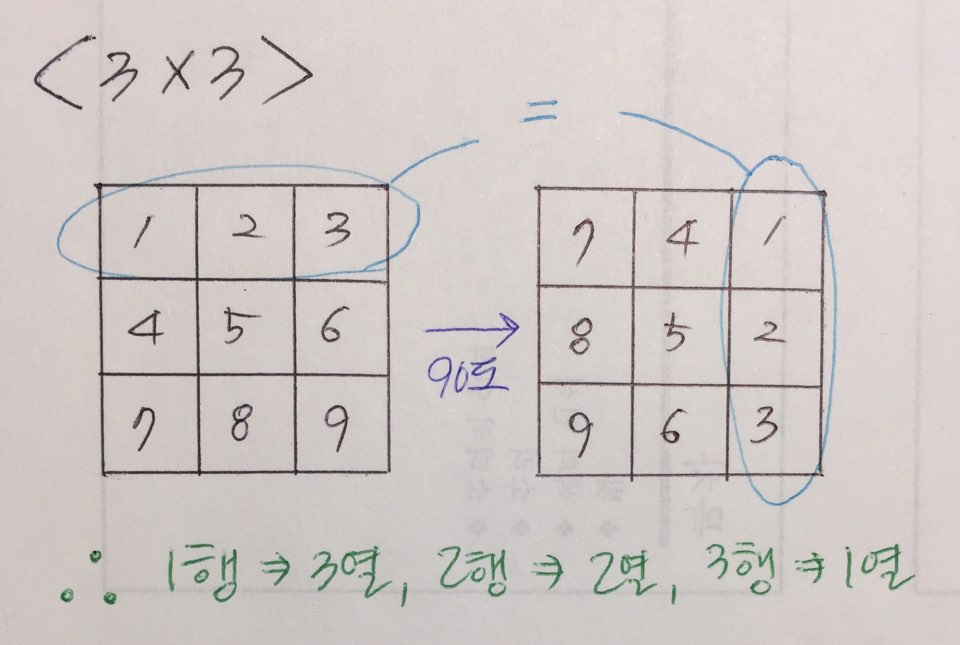 <3×3>
=
1 2 3 7 4 1
4 5 6 8 5 2
90도
7 8 9 9 6 3
∴ 1행 ⇒ 3열, 2행 ⇒ 2열, 3행 ⇒ 1열